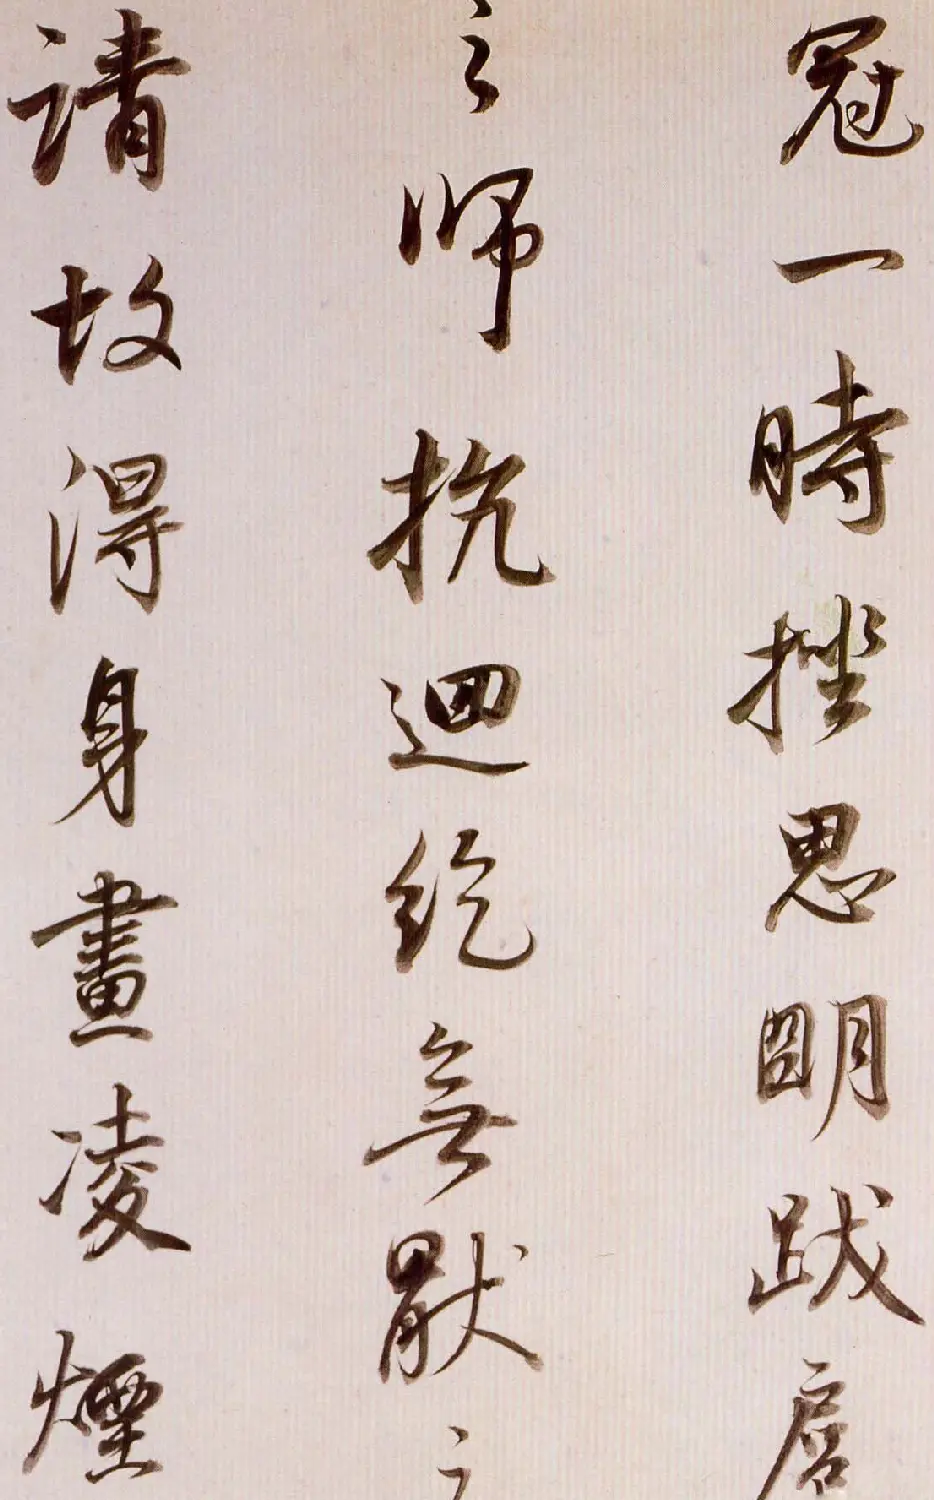 冠一時挫思明跋扈
之師抗迴紇無猒之
請故得身畫凌煙